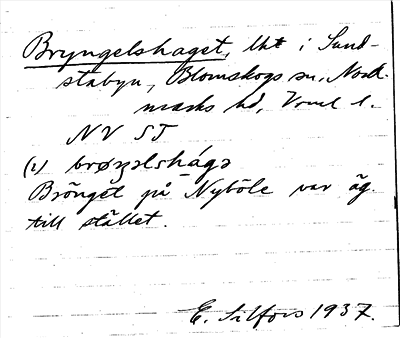 Bryngelshaget, lht i Sund-
stabyn, Blomskogs sn, Nord-
marks hd, Vrml l.
NV ST
(1) brøŋəlshagə
Bröngel på Nyböle var äg.
till stället.
E. Silfors 1937.